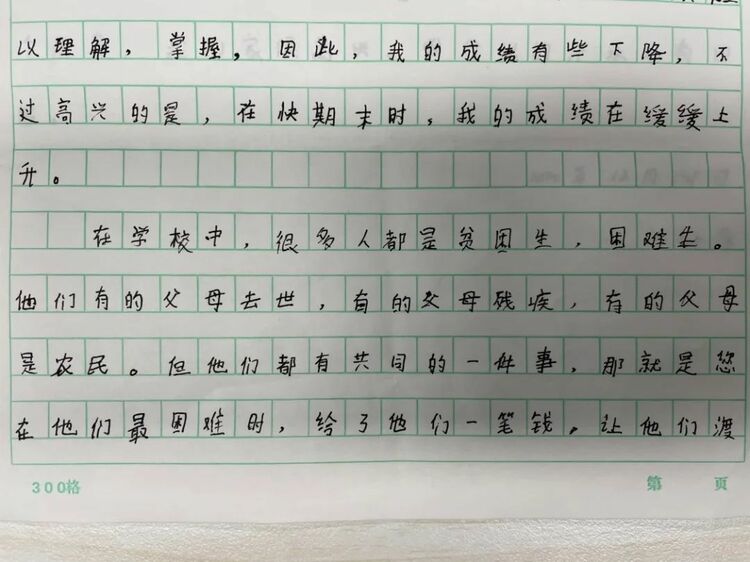 以理解，掌握，因此，我的成绩有些下降，不
过高兴的是，在快期末时，我的成绩在缓缓上
升。
在学校中，很多人都是贫困生，困难生。
他们有的父母去世，有的父母残疾，有的父母
是农民。但他们都有共同的一件事，那就是您
在他们最困难时，给了他们一笔钱，让他们渡
300格
第 页